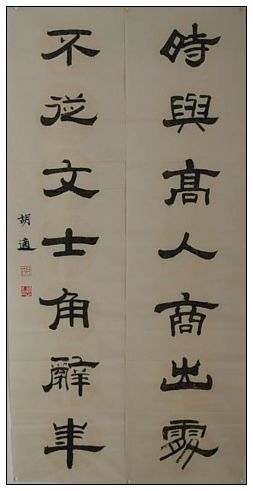 時與高人商出處
不從文士角辭
胡適